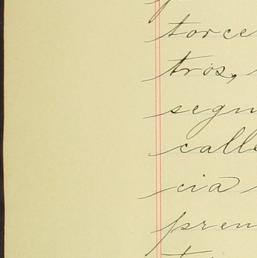 torce
tros,
segun
calle
cia
pren